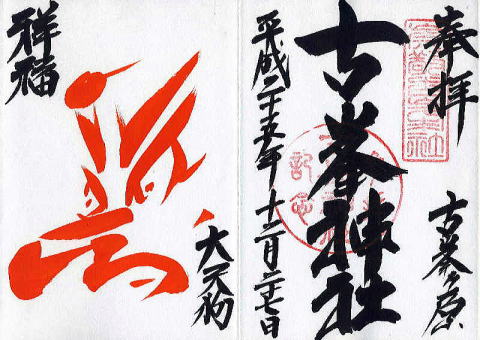 奉拝
古峯ヶ原
古峯神社
平成二十五年十二月二十七日
祥福
大天狗